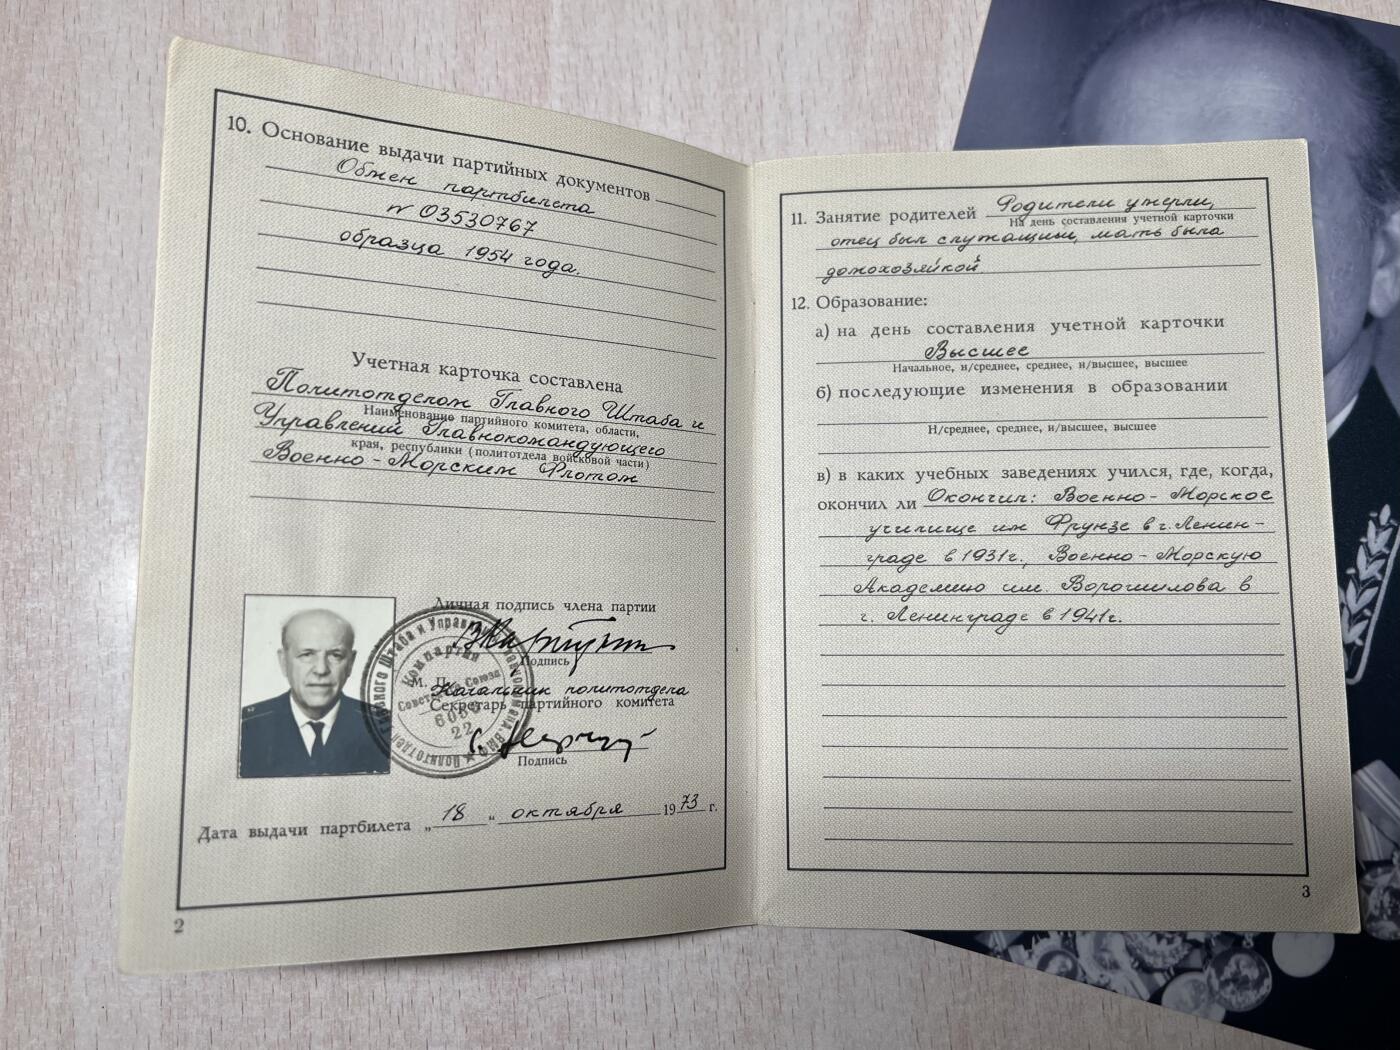 10. Основание выдачи партийных документов
Обмен партбилета
№ 03530767
образца 1954 года.
Учетная карточка составлена
Политотделом Главного Штаба и
Наименование партийного комитета, области,
Управлений Главнокомандующего
края, республики (политотдела войсковой части)
Военно-Морским Флотом
Личная подпись члена партии
Подпись
М. П.
Начальник политотдела
Секретарь партийного комитета
Подпись
Компартия
Советского Союза
22
Дата выдачи партбилета „ 18 “ октября 1973 г.
2
11. Занятие родителей Родители умерли,
На день составления учетной карточки
отец был служащим, мать была
домохозяйкой.
12. Образование:
а) на день составления учетной карточки
Высшее
Начальное, н/среднее, среднее, н/высшее, высшее
б) последующие изменения в образовании
Н/среднее, среднее, н/высшее, высшее
в) в каких учебных заведениях учился, где, когда,
окончил ли Окончил: Военно-Морское
училище им Фрунзе в г. Ленин-
граде в 1931г., Военно-Морскую
Академию им. Ворошилова в
г. Ленинграде в 1941г.
3